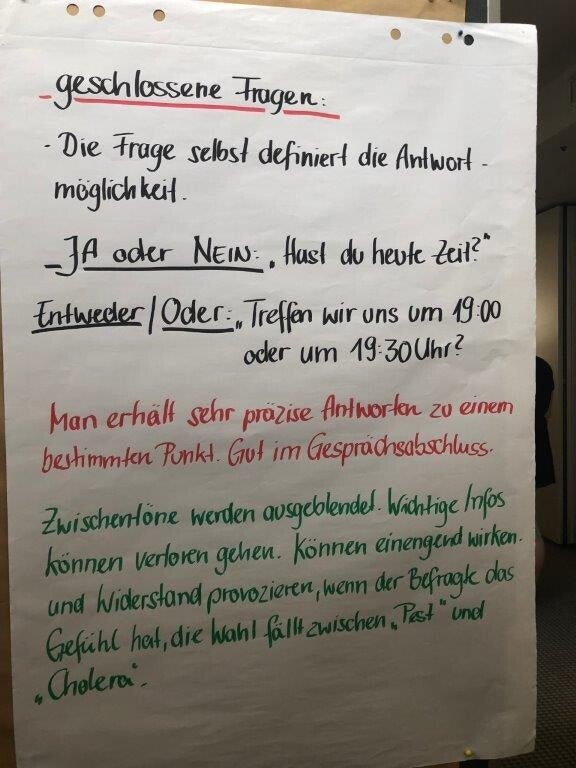 - geschlossene Fragen:
- Die Frage selbst definiert die Antwort -
möglichkeit.
- JA oder NEIN: „Hast du heute Zeit?"
Entweder/Oder: „Treffen wir uns um 19:00
oder um 19:30 Uhr?
Man erhält sehr präzise Antworten zu einem
bestimmten Punkt. Gut im Gesprächsabschluss.
Zwischentöne werden ausgeblendet. Wichtige Infos
können verloren gehen. Können einengend wirken.
und Widerstand provozieren, wenn der Befragte das
Gefühl hat, die Wahl fällt zwischen „Pest" und
„Cholera".